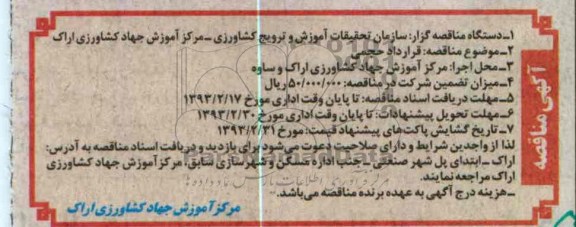 آگهی مناقصه
۱ـ دستگاه مناقصه گزار: سازمان تحقیقات آموزش و ترویج کشاورزی ـ مرکز آموزش جهاد کشاورزی اراک
۲ـ موضوع مناقصه: قرارداد حجمی
۳ـ محل اجرا: مرکز آموزش جهاد کشاورزی اراک و ساوه
۴ـ میزان تضمین شرکت در مناقصه: ۵۰/۰۰۰/۰۰۰ ریال
۵ـ مهلت دریافت اسناد مناقصه: تا پایان وقت اداری مورخ ۱۳۹۳/۲/۱۷
۶ـ مهلت تحویل پیشنهادات: تا پایان وقت اداری مورخ ۱۳۹۳/۲/۳۰
۷ـ تاریخ گشایش پاکت‌های پیشنهاد قیمت: مورخ ۱۳۹۳/۲/۳۱
لذا از واجدین شرایط و دارای صلاحیت دعوت می‌شود برای بازدید و دریافت اسناد مناقصه به آدرس:
اراک ـ ابتدای پل شهر صنعتی جنب اداره مسکن و شهرسازی سابق، مرکز آموزش جهاد کشاورزی
اراک مراجعه نمایند.
ـ هزینه درج آگهی به عهده برنده مناقصه می‌باشد.
مرکز آموزش جهاد کشاورزی اراک